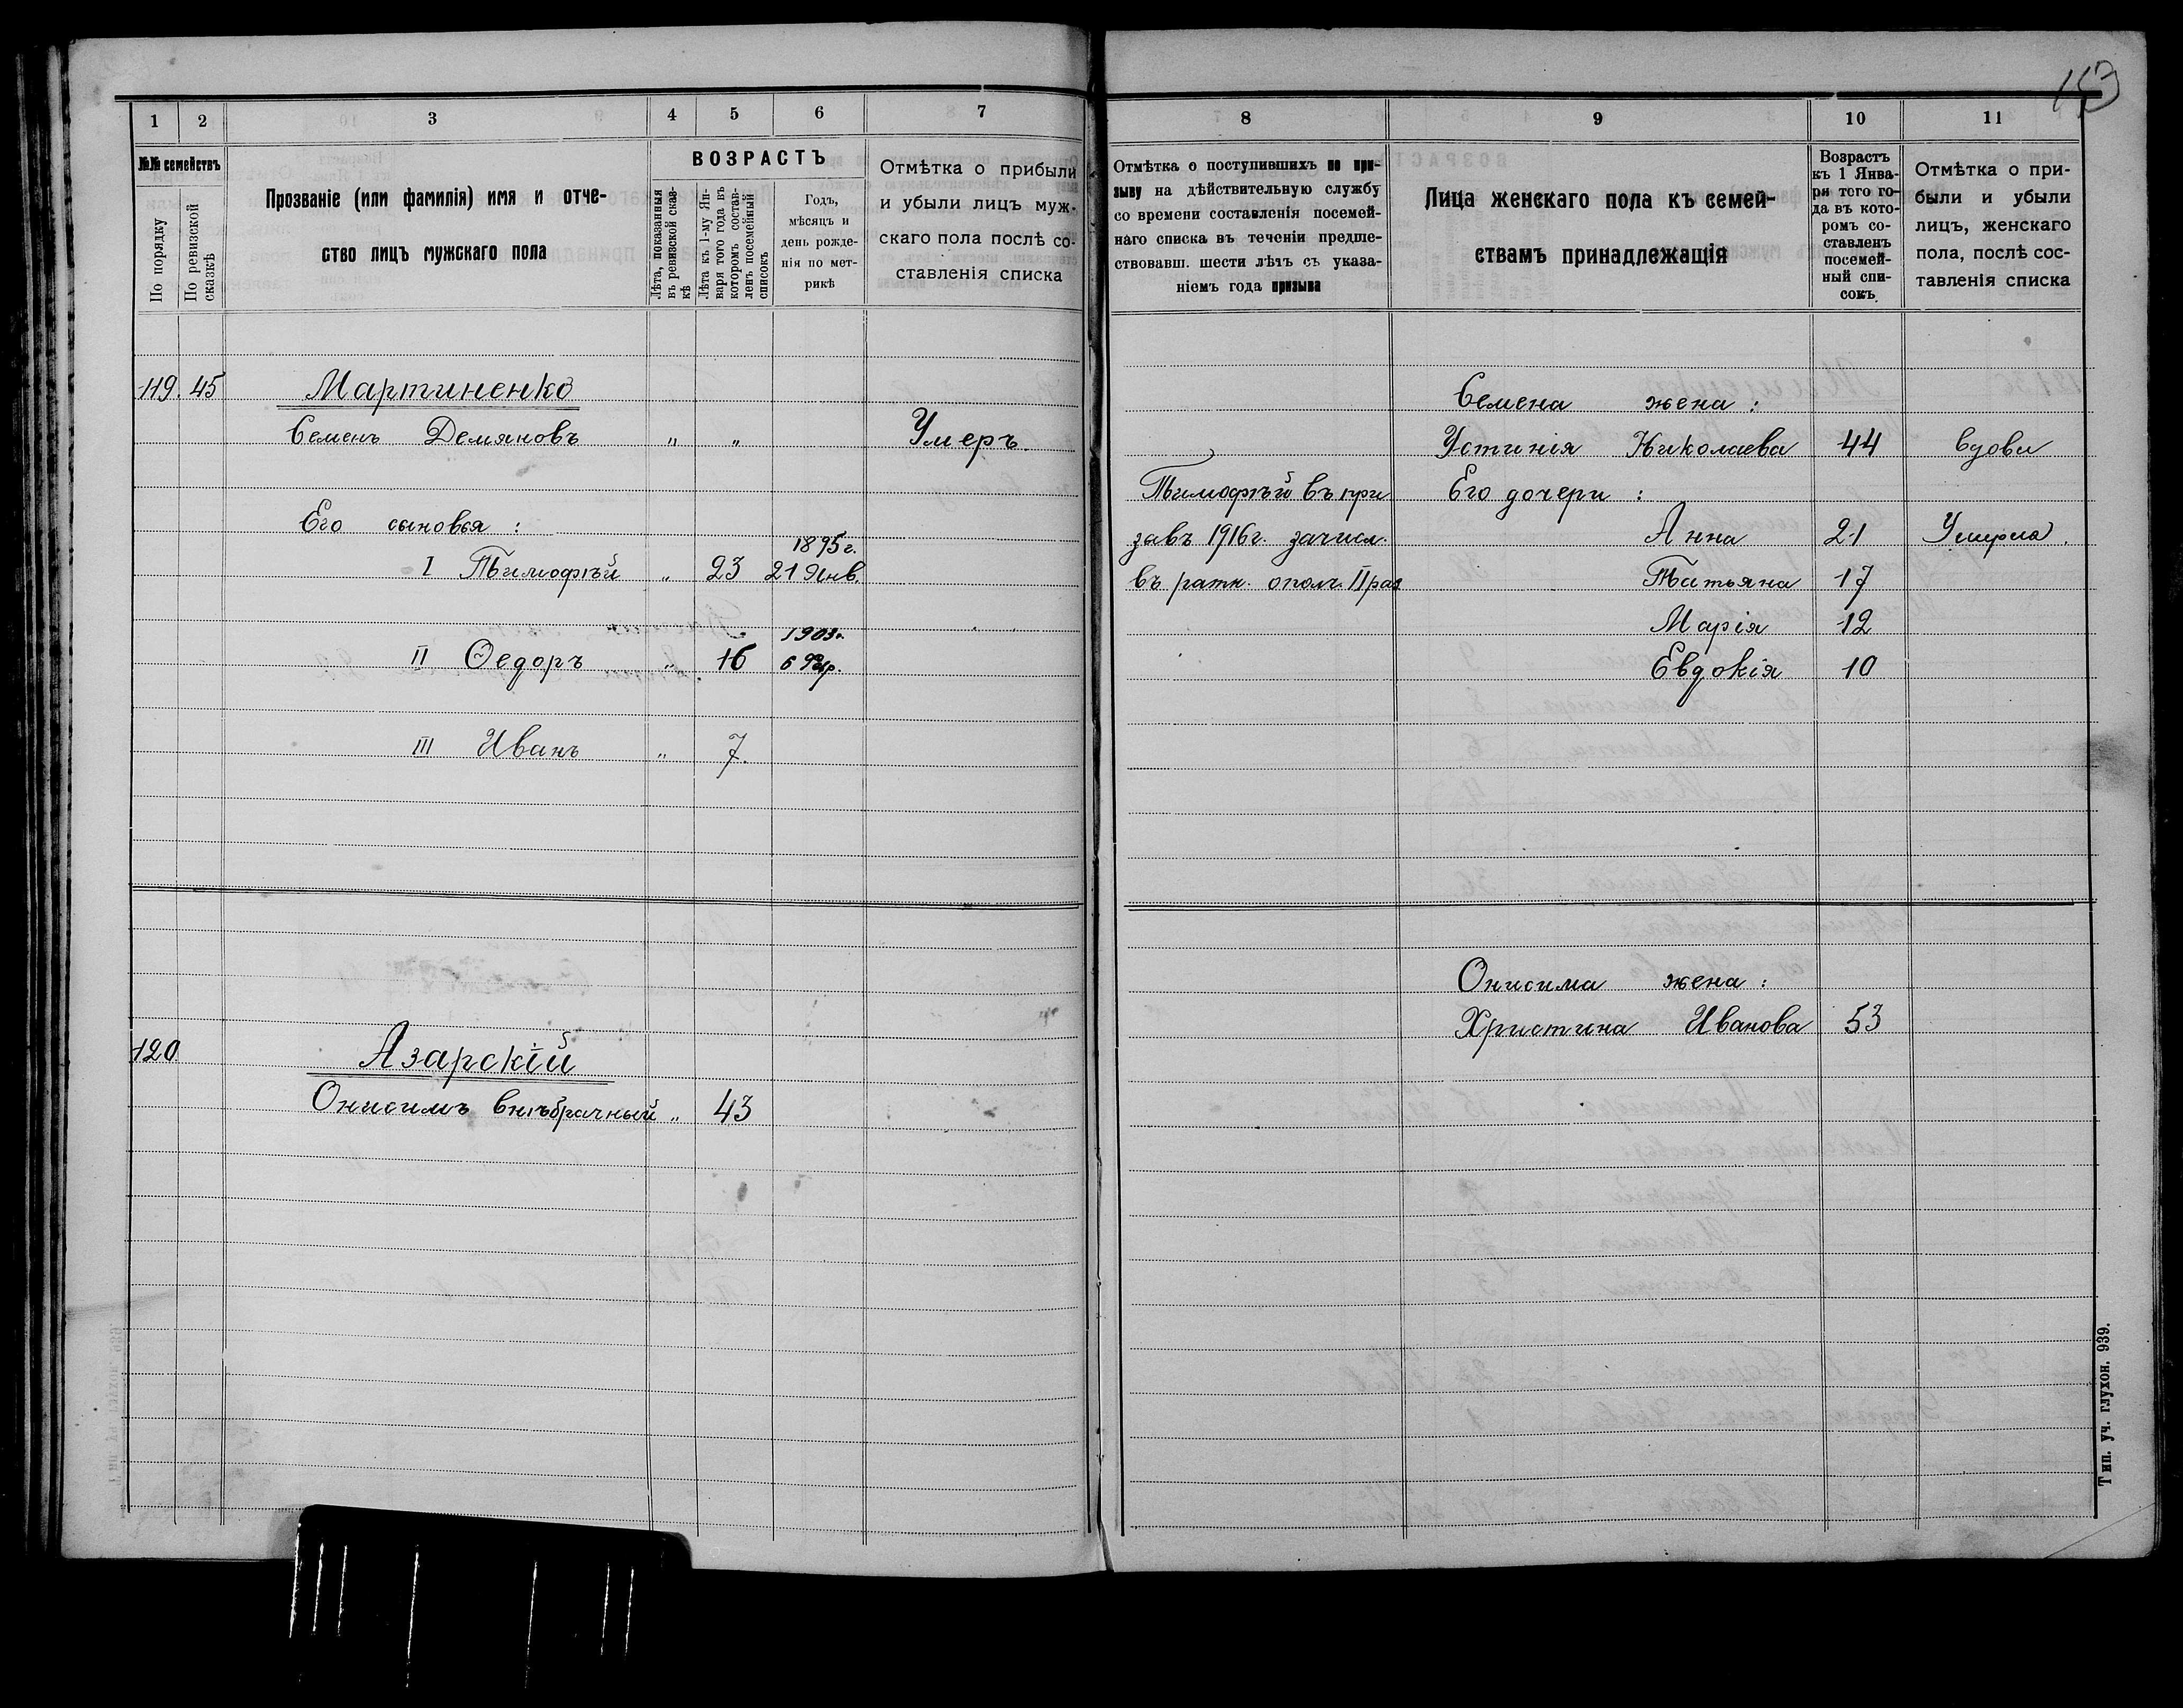 153
1 2 3 4 5 6 7
№№ семействъ
По порядку
По ревизской сказкѣ
Прозваніе (или фамилія) имя и отче-
ство лицъ мужскаго пола
ВОЗРАСТЪ
Лѣта, показанныя
въ ревизской сказ-
кѣ
Лѣта къ 1-му Ян-
варя того года въ
которомъ состав-
ленъ посемейный
списокъ
Годъ,
мѣсяцъ и
день рожде-
нія по мет-
рикѣ
Отмѣтка о прибыли
и убыли лицъ муж-
скаго пола послѣ со-
ставленія списка
119. 45 Мартиненко
Семенъ Демяновъ „ „ Умеръ.
Его сыновья :
1895 г.
I Тимофѣй „ 23 21 Янв.
1903 г.
II Ѳедоръ „ 16 6 Фвр.
III Иванъ „ 7.
120 Азарскій
Онисимъ внѣбрачный „ 43
8 9 10 11
Отмѣтка о поступившихъ по при-
зыву на дѣйствительную службу
со времени составленія посемей-
наго списка въ теченіи предше-
ствовавш. шести лѣтъ съ указа-
ніемъ года призыва
Лица женскаго пола къ семей-
ствамъ принадлежащія
Возрастъ
къ 1 Янва-
ря того го-
да въ кото-
ромъ со-
ставленъ
посемей-
ный спи-
сокъ
Отмѣтка о при-
были и убыли
лицъ, женскаго
пола, послѣ сос-
тавленія списка
Семена жена :
Устинія Николаева 44 вдова
Тимофѣй въ при Его дочери :
зывъ 1916 г. зачисл. Анна 21 Умерла.
въ ратн. ополч. II раз Татьяна 17
Марія 12
Евдокія 10
Онисима жена :
Христина Иванова 53
Тип. уч. глухон. 939.